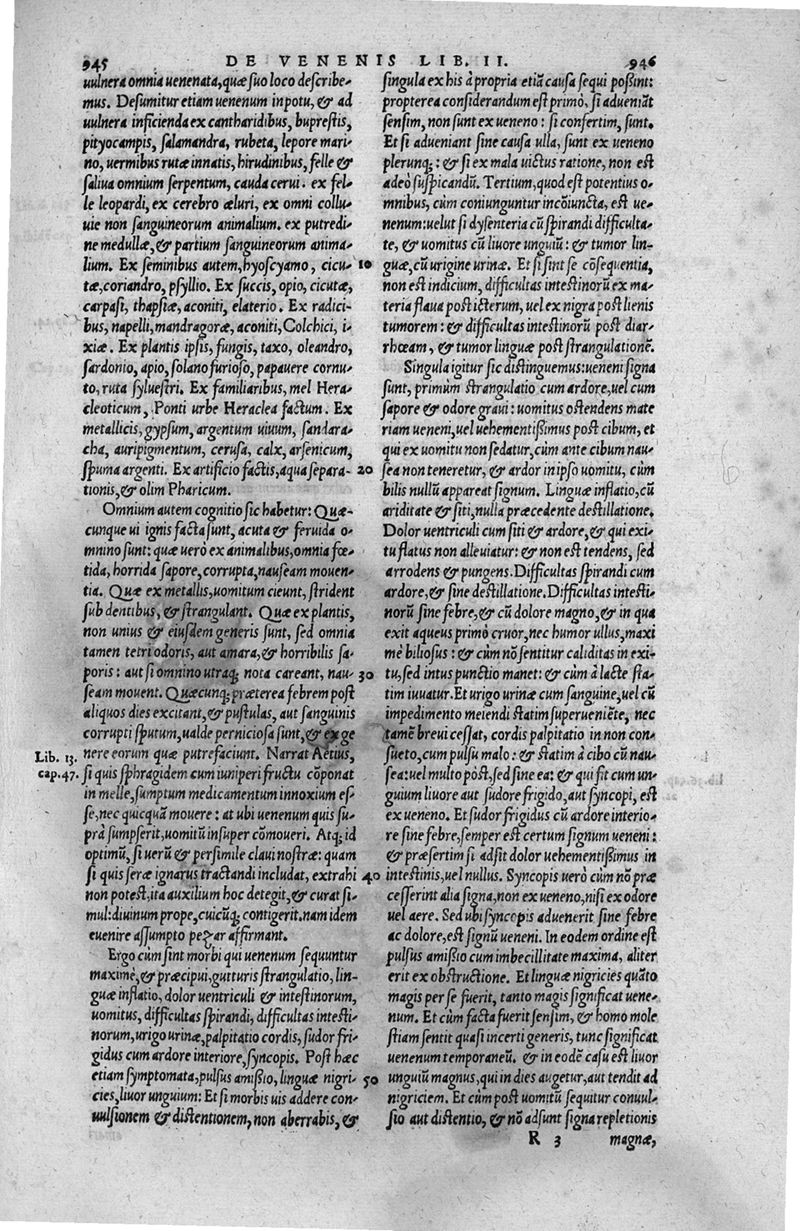 945 DE VENENIS LIB. II. 946
uulnera omnia uenenata, quæ suo loco describe-
mus. Desumitur etiam uenenum in potu, & ad
uulnera inficienda ex cantharidibus, buprestis,
pityocampis, salamandra, rubeta, lepore mari-
no, uermibus rutæ innatis, hirudinibus, felle &
saliua omnium serpentum, cauda cerui. ex fel-
le leopardi, ex cerebro æluri, ex omni collu-
uie non sanguineorum animalium. ex putredi-
ne medullæ, & partium sanguineorum anima-
lium. Ex seminibus autem, hyoscyamo, cicu- 10
tæ, coriandro, psyllio. Ex succis, opio, cicutæ,
carpasi, thapsiæ, aconiti, elaterio. Ex radici-
bus, napelli, mandragoræ, aconiti, Colchici, i-
xiæ. Ex plantis ipsis, fungis, taxo, oleandro,
sardonio, apio, solano furioso, papauere cornu-
to, ruta syluestri. Ex familiaribus, mel Hera-
cleoticum, Ponti urbe Heraclea factum. Ex
metallicis, gypsum, argentum uiuum, sandara-
cha, auripigmentum, cerusa, calx, arsenicum,
spuma argenti. Ex artificio factis, aqua separa- 20
tionis, & olim Pharicum.
Omnium autem cognitio sic habetur: Quæ-
cunque ui ignis facta sunt, acuta & feruida o-
mnino sunt: quæ uerò ex animalibus, omnia fœ-
tida, horrida sapore, corrupta, nauseam mouen-
tia. Quæ ex metallis, uomitum cieunt, strident
sub dentibus, & strangulant. Quæ ex plantis,
non unius & eiusdem generis sunt, sed omnia
tamen tetri odoris, aut amara, & horribilis sa-
poris: aut si omnino utraq; nota careant, nau- 30
seam mouent. Quæcunq; præterea febrem post
aliquos dies excitant, & pustulas, aut sanguinis
corrupti sputum, ualde perniciosa sunt, & ex ge
nere eorum quæ putrefaciunt. Narrat Aëtius,
Lib. 13.
cap. 47.
si quis sphragidem cum iuniperi fructu cõponat
in melle, sumptum medicamentum innoxium es-
se, nec quicquã mouere: at ubi uenenum quis su-
prà sumpserit, uomitũ insuper cõmoueri. Atq; id
optimũ, si uerũ & persimile claui nostræ: quam
si quis seræ ignarus tractandi includat, extrahi 40
non potest, ita auxilium hoc detegit, & curat si-
mul: diuinum prope, cuicũq; contigerit. nam idem
euenire assumpto pezar affirmant.
Ergo cùm sint morbi qui uenenum sequuntur
maximè, & præcipui, gutturis strangulatio, lin-
guæ inflatio, dolor uentriculi & intestinorum,
uomitus, difficultas spirandi, difficultas intesti-
norum, urigo urinæ, palpitatio cordis, sudor fri-
gidus cum ardore interiore, syncopis. Post hæc
etiam symptomata, pulsus amissio, linguæ nigri- 50
cies, liuor unguium: Et si morbis uis addere con-
uulsionem & distentionem, non aberrabis, &
singula ex his à propria etiã causa sequi possint:
propterea considerandum est primò, si adueniãt
sensim, non sunt ex ueneno: si confertim, sunt.
Et si adueniant sine causa ulla, sunt ex ueneno
plerunq;: & si ex mala uictus ratione, non est
adeò suspicandũ. Tertium, quod est potentius o-
mnibus, cùm coniunguntur incõiuncta, est ue-
nenum: uelut si dysenteria cũ spirandi difficulta-
te, & uomitus cũ liuore unguiũ: & tumor lin-
guæ, cũ urigine urinæ. Et si sint se cõsequentia,
non est indicium, difficultas intestinorũ ex ma-
teria flaua post icterum, uel ex nigra post lienis
tumorem: & difficultas intestinorũ post diar-
rhœam, & tumor linguæ post strangulationẽ.
Singula igitur sic distinguemus: ueneni signa
sunt, primùm strangulatio cum ardore, uel cum
sapore & odore graui: uomitus ostendens mate
riam ueneni, uel uehementissimus post cibum, et
qui ex uomitu non sedatur, cùm ante cibum nau-
sea non teneretur, & ardor in ipso uomitu, cùm
bilis nullũ appareat signum. Linguæ inflatio, cũ
ariditate & siti, nulla præcedente destillatione.
Dolor uentriculi cum siti & ardore, & qui exi-
tu flatus non alleuiatur: & non est tendens, sed
arrodens & pungens. Difficultas spirandi cum
ardore, & sine destillatione. Difficultas intesti-
norũ sine febre, & cũ dolore magno, & in qua
exit aqueus primò cruor, nec humor ullus, maxi
mè biliosus: & cùm nõ sentitur caliditas in exi-
tu, sed intus punctio manet: & cùm à lacte sta-
tim iuuatur. Et urigo urinæ cum sanguine, uel cũ
impedimento meiendi statim superueniẽte, nec
tamẽ breui cessat, cordis palpitatio in non con-
sueto, cum pulsu malo: & statim à cibo cũ nau-
sea: uel multo pòst, sed sine ea: & qui fit cum un-
guium liuore aut sudore frigido, aut syncopi, est
ex ueneno. Et sudor frigidus cũ ardore interio-
re sine febre, semper est certum signum ueneni:
& præsertim si adsit dolor uehementissimus in
intestinis, uel nullus. Syncopis uerò cùm nõ præ
cesserint alia signa, non ex ueneno, nisi ex odore
uel aere. Sed ubi syncopis aduenerit sine febre
ac dolore, est signũ ueneni. In eodem ordine est
pulsus amissio cum imbecillitate maxima, aliter
erit ex obstructione. Et linguæ nigricies quãto
magis per se fuerit, tanto magis significat uene-
num. Et cùm facta fuerit sensim, & homo mole
stiam sentit quasi incerti generis, tunc significat
uenenum temporaneũ. & in eodẽ casu est liuor
unguiũ magnus, qui in dies augetur, aut tendit ad
nigriciem. Et cùm post uomitũ sequitur conuul-
sio aut distentio, & nõ adsunt signa repletionis
R 3 magnæ,